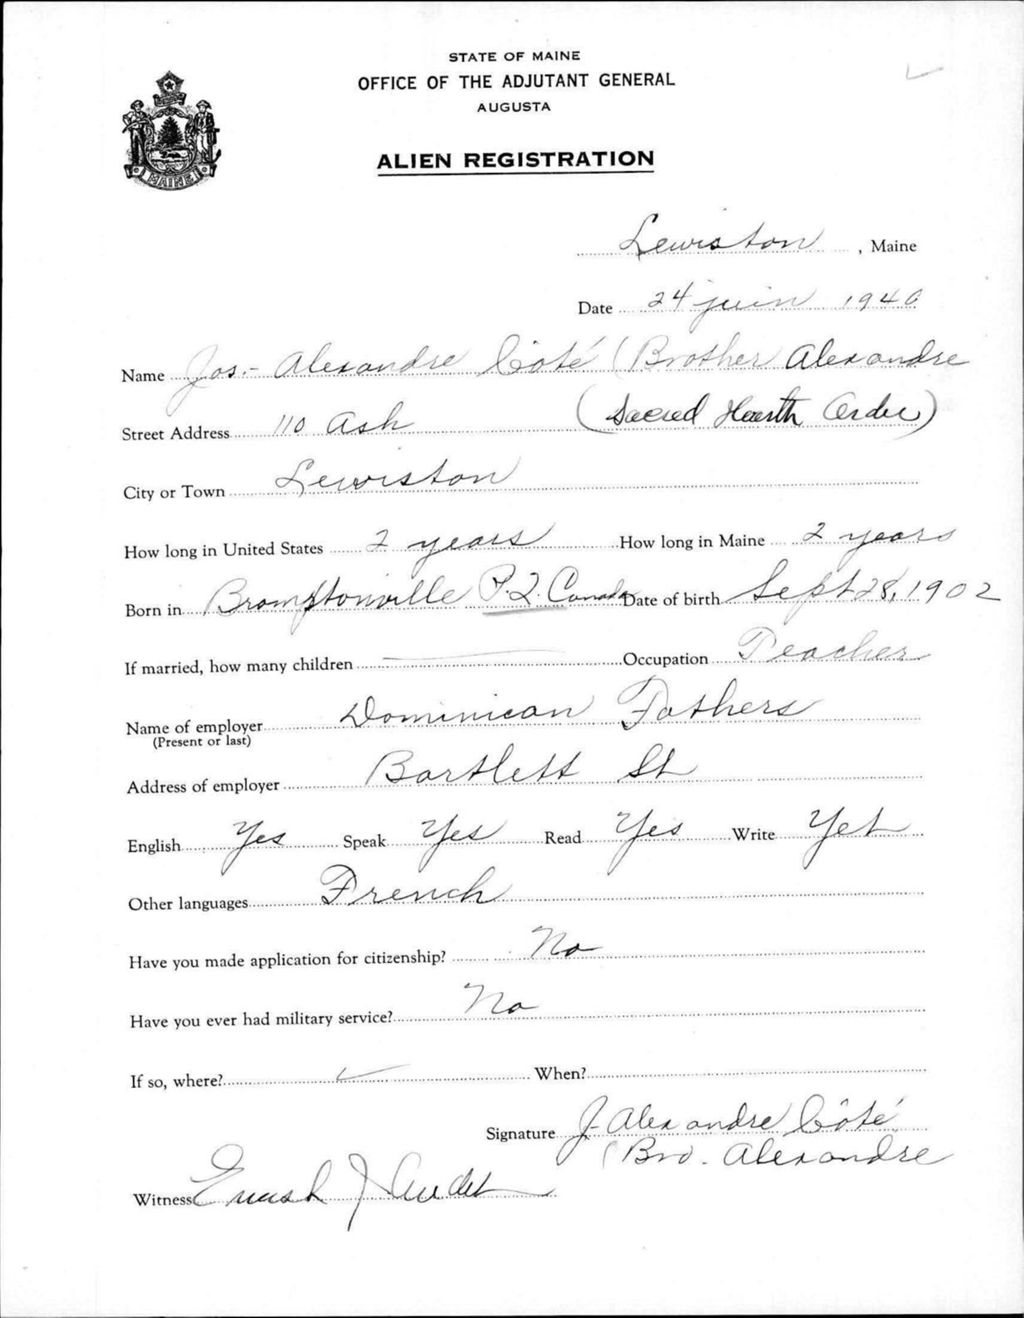 STATE OF MAINE
OFFICE OF THE ADJUTANT GENERAL
AUGUSTA
MAINE
ALIEN REGISTRATION
Lewiston, Maine
Date 24 juin 1940
Name Jos.- Alexandre Côté (Brother Alexandre
Street Address 110 Ash (Sacred Hearth Order)
City or Town Lewiston
How long in United States 2 years How long in Maine 2 years
Born in Bromptonville P.Q. Canada Date of birth Sept 28, 1902
If married, how many children Occupation Teacher
Name of employer Dominican Fathers
(Present or last)
Address of employer Bartlett St
English Yes Speak Yes Read Yes Write Yet
Other languages French
Have you made application for citizenship? No
Have you ever had military service? No
If so, where? When?
Signature J-Alexandre Côté
(Bro. Alexandre
Witness J Audet